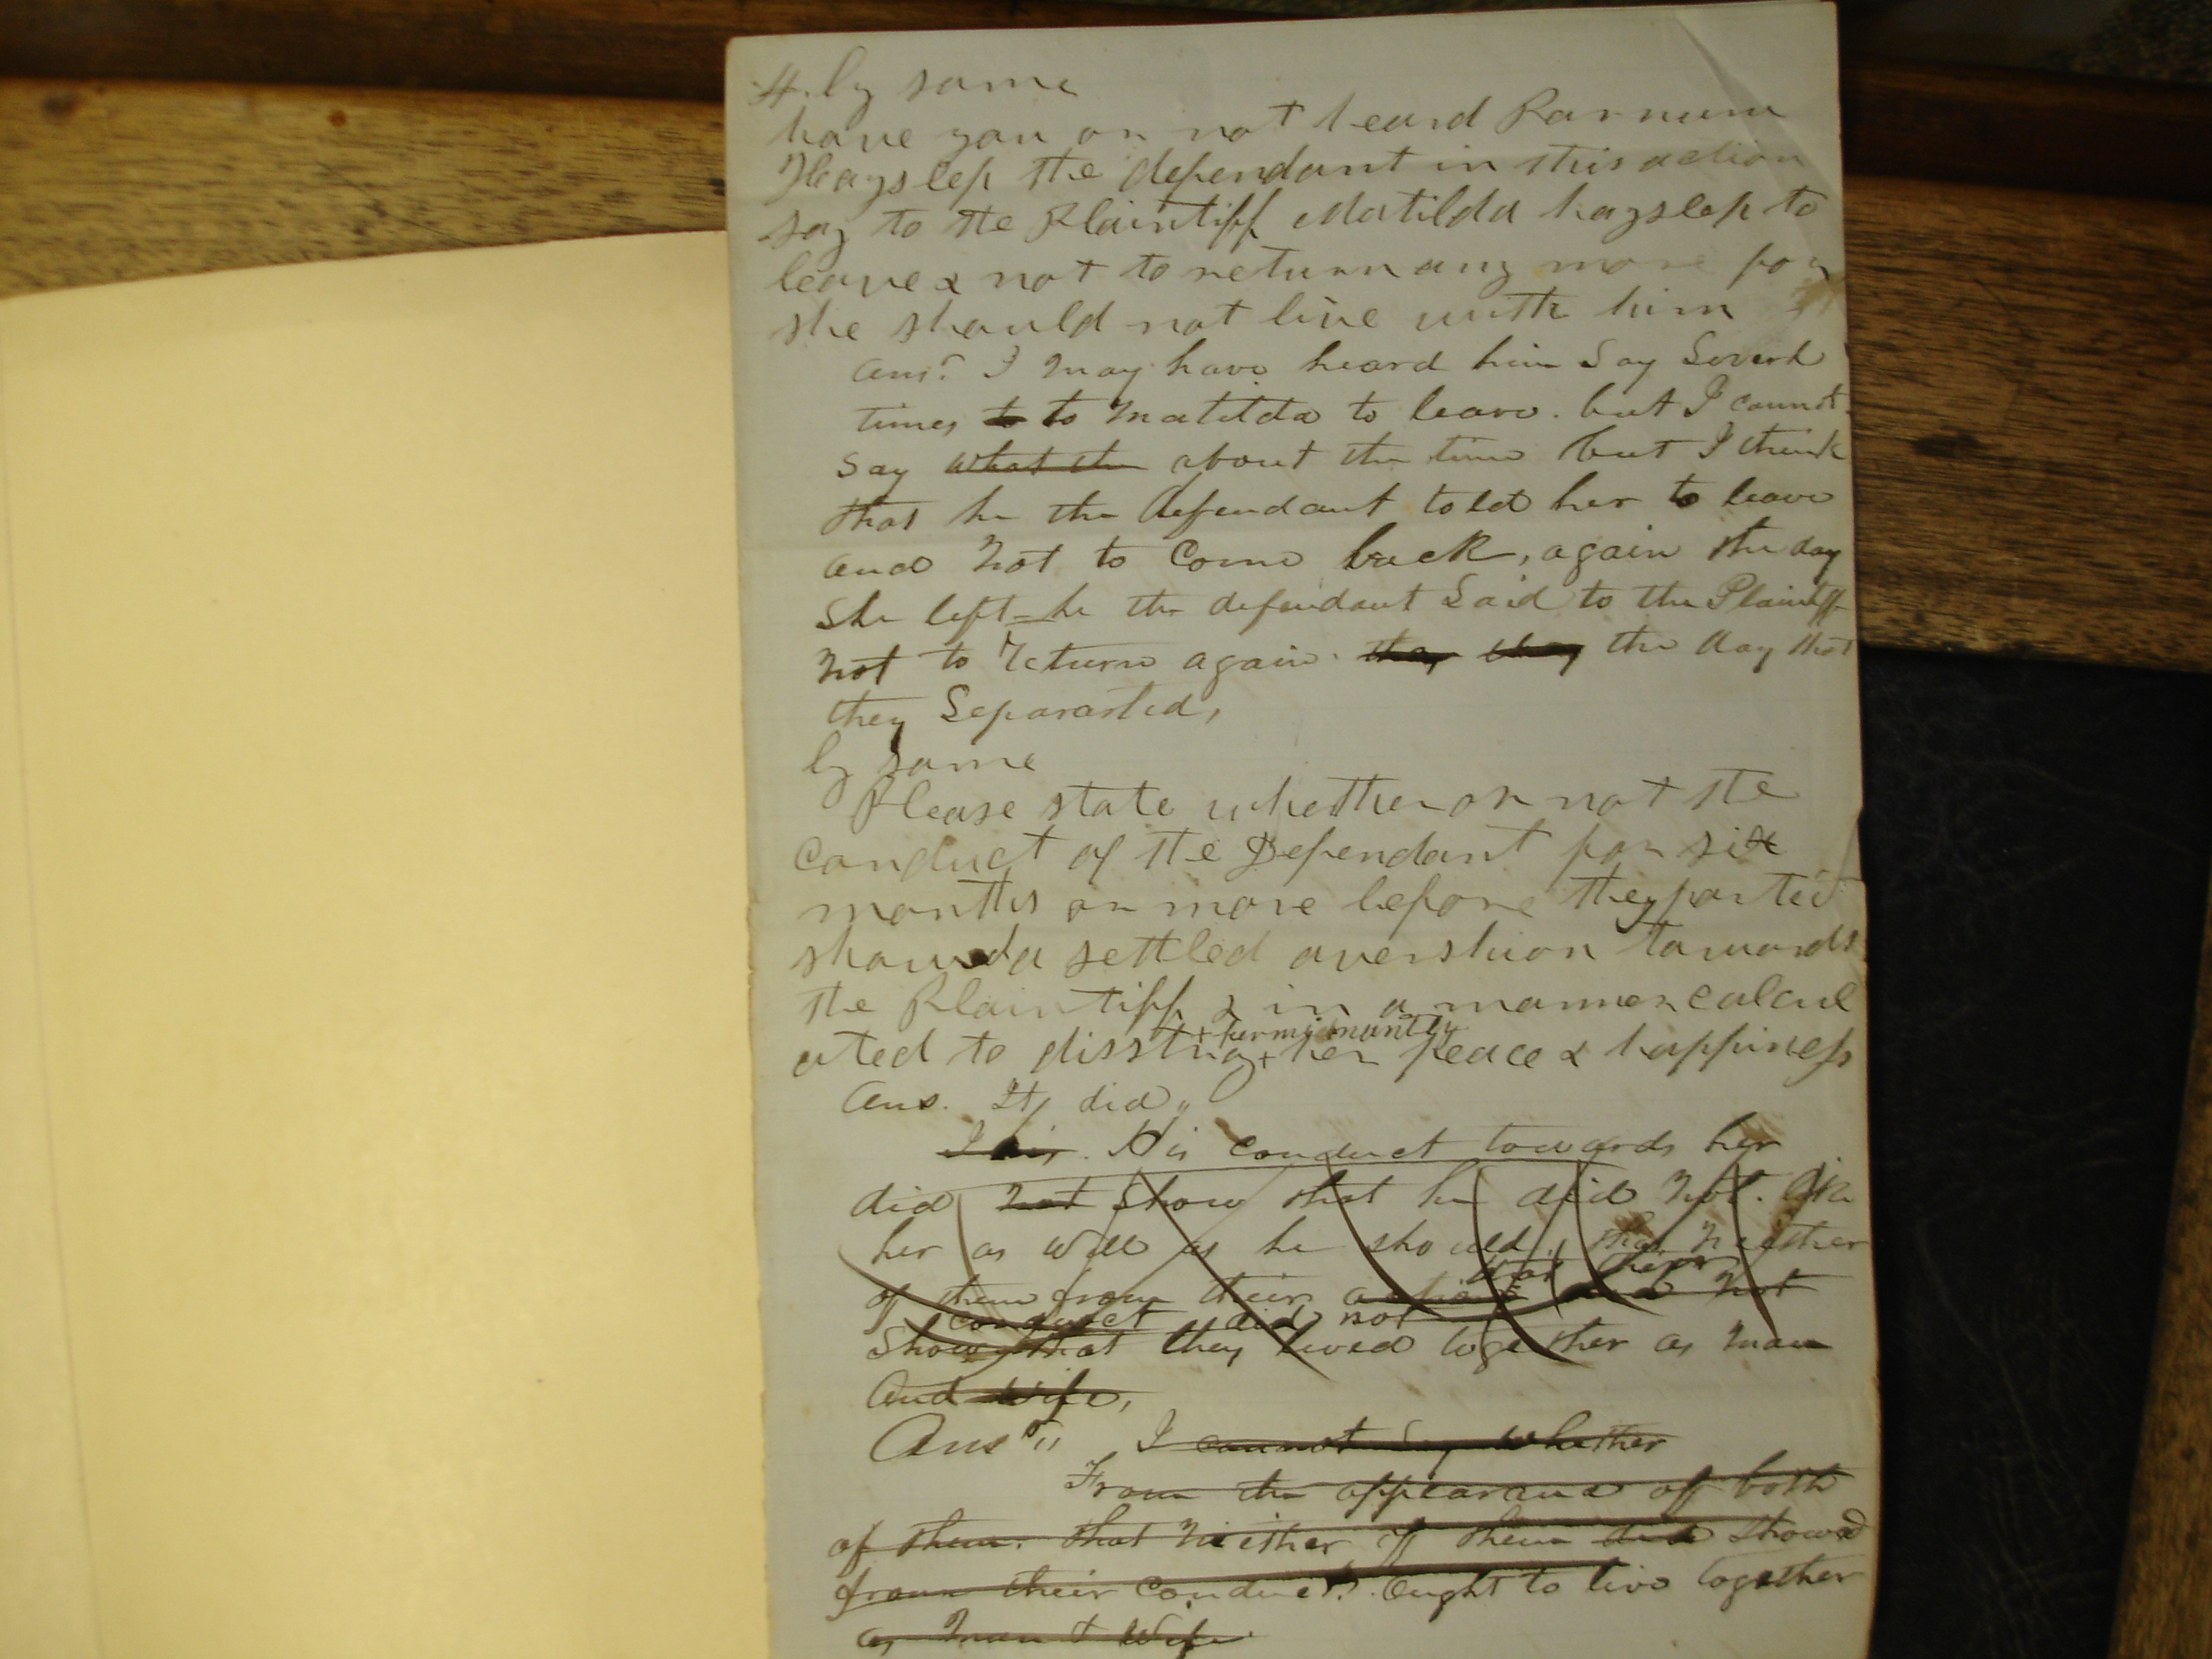 4. by same
have you or not heard Barnum
Hayslep the defendant in this action
say to the Plaintiff Matilda hayslep to
leave & not to return any more for
she should not live with him
Ans. I may have heard him Say Severl
times to to Matilda to leave. but I cannot
Say what the about the time but I think
that he the defendant told her to leave
and Not to Come back, again the day
She left = he the defendant Said to the Plaintiff
Not to Return again. they they the day that
they Separarted,
by same
Please state whether or not the
conduct of the Defendant for six
months or more before they parted
showed a settled avershion towards
the Plaintiff & in a manner calcul
+ permimantly
ated to disstroy + her peace & happiness
Ans. It did,,
I His Conduct towards her
did not Show that he did Not. like
her as Well as he should,, that Neither
that their
of them from their actions did not
conduct did not
Show that they lived together as man
And Wife,
Ans ,, I cannot Say Whether
From the appearance off both
of them. that Neither off them did Showed
from their Conduct. Ought to live together
as Man & Wife